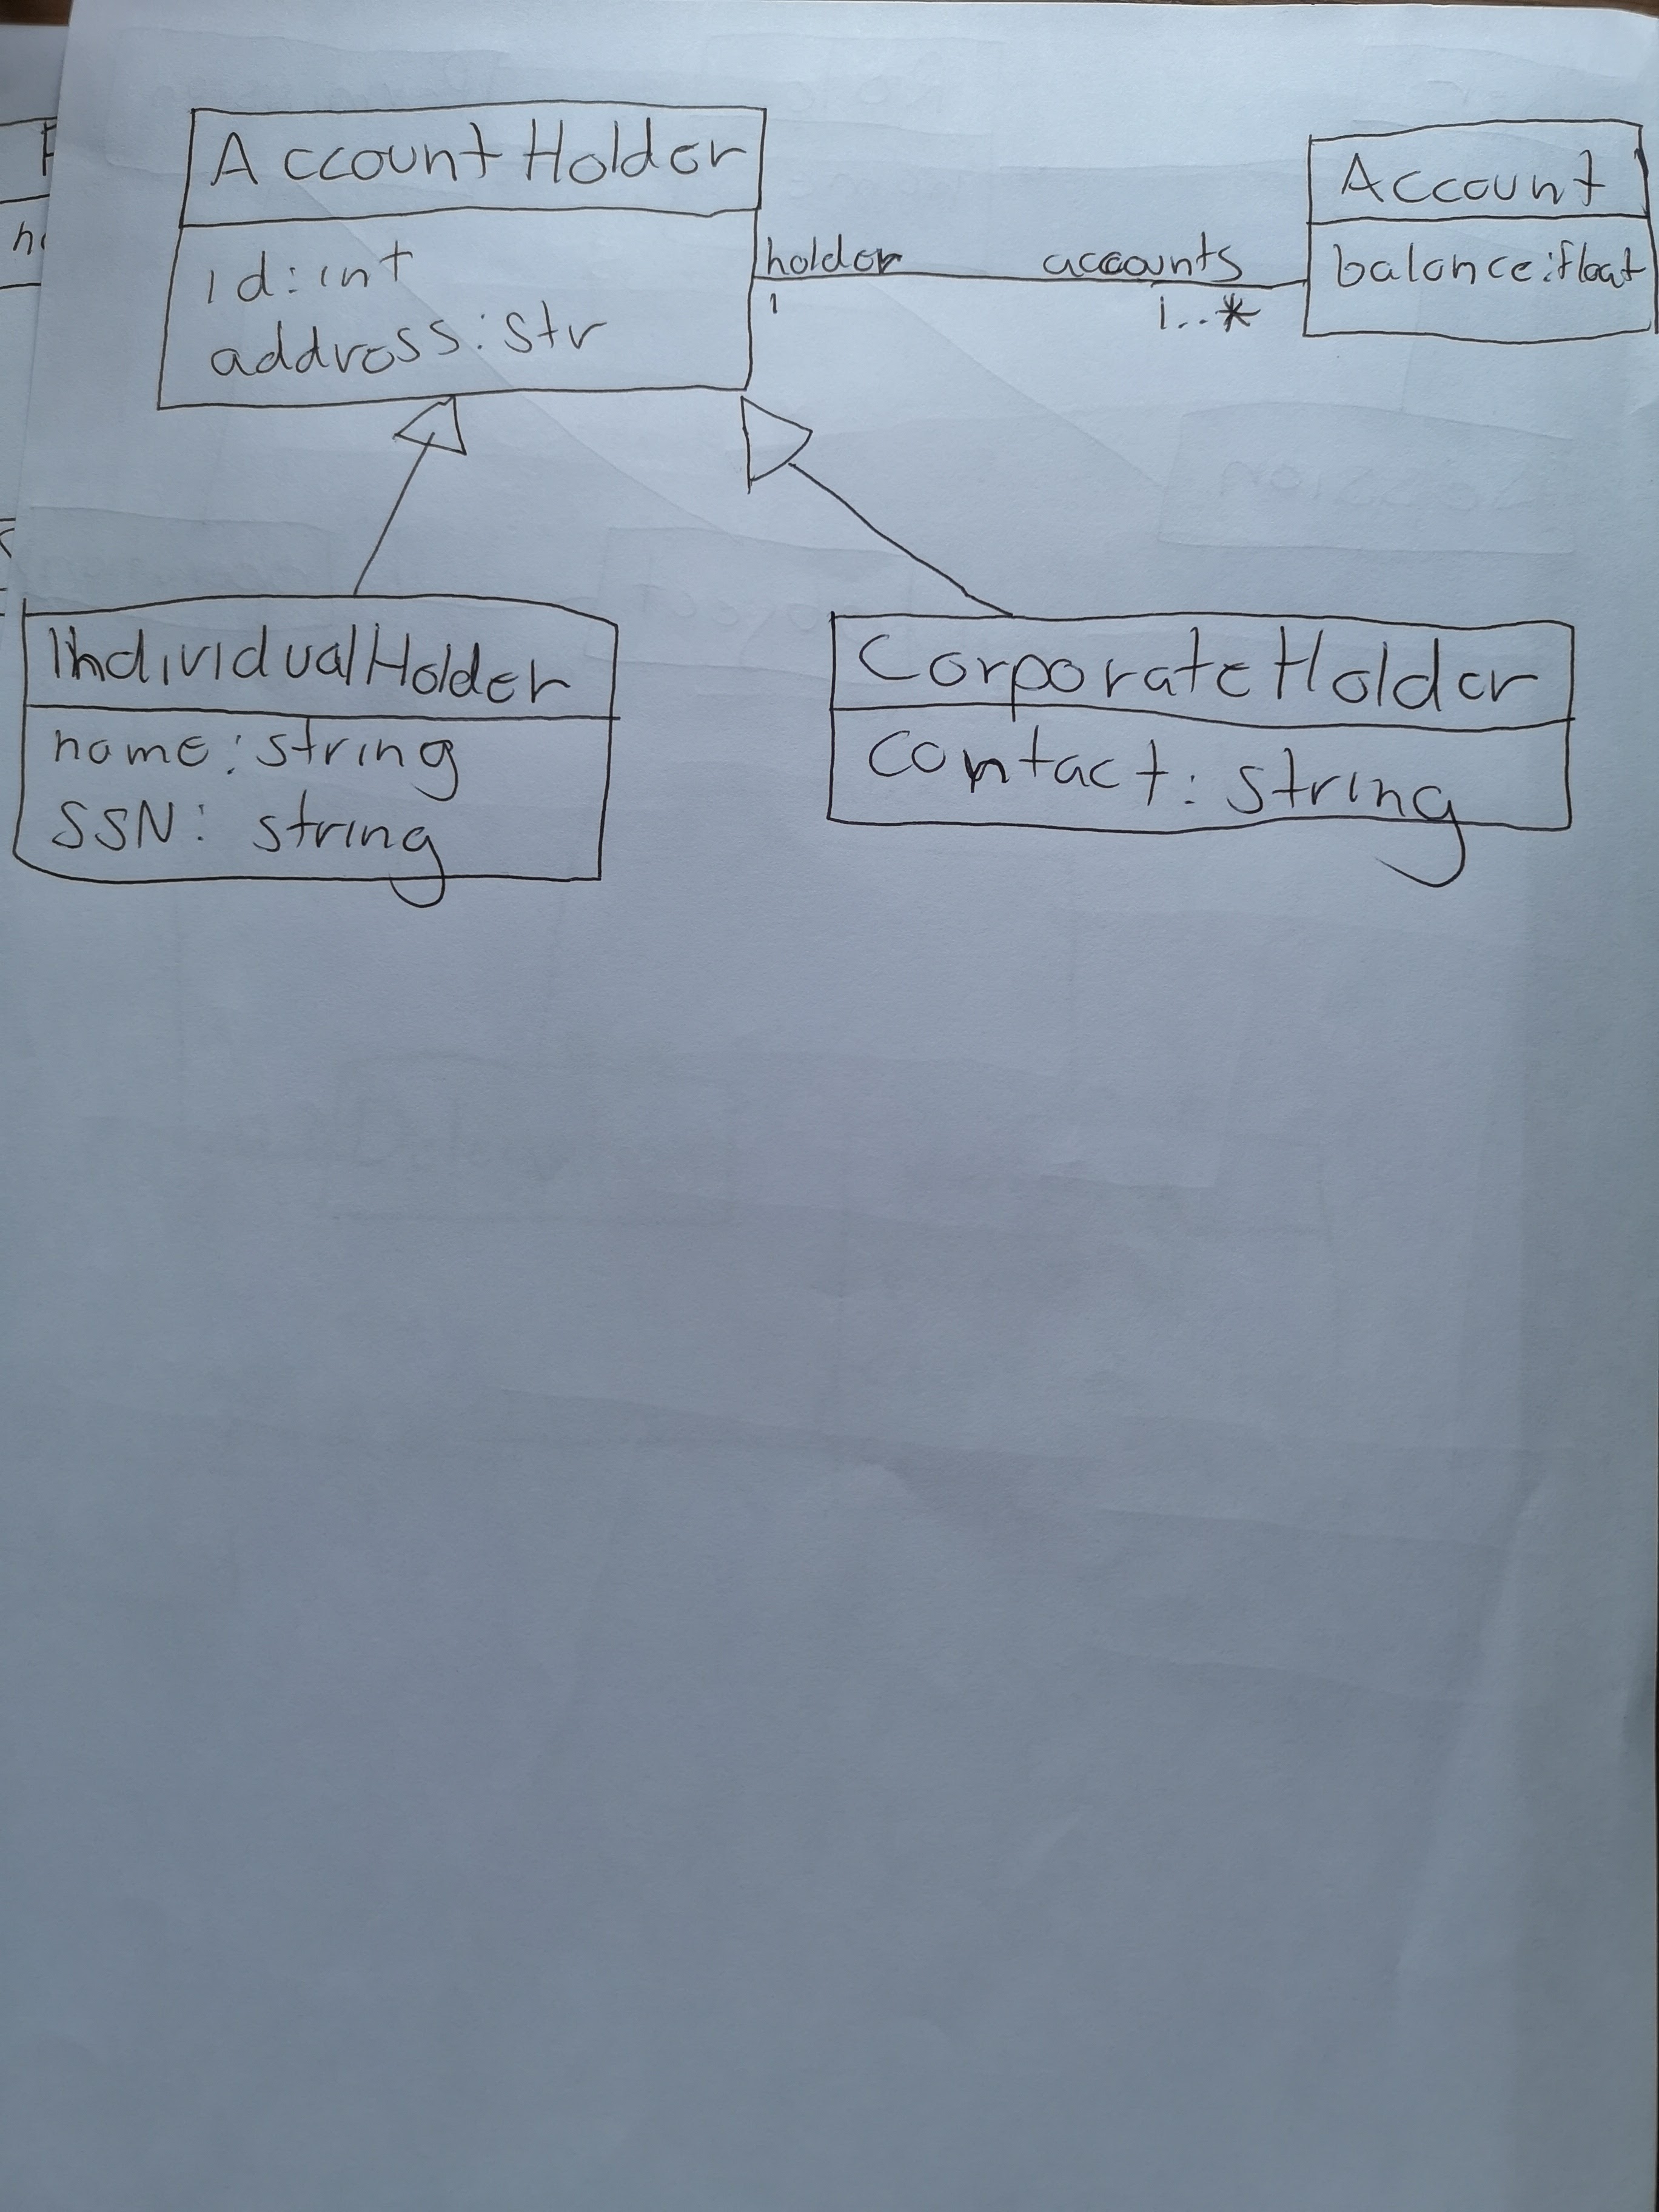 AccountHolder
id: int
address: str
holder
1
accounts
1..*
Account
balance: float
IndividualHolder
name: string
SSN: string
CorporateHolder
contact: string